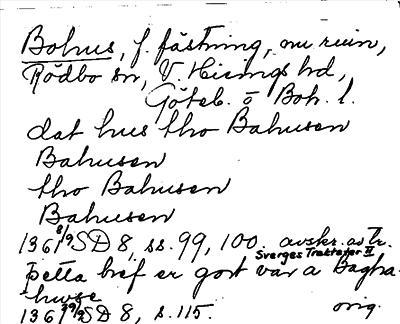 Bohus, f. fästning, nu ruin,
Rödbo sn, V. Hisings hd,
Göteb. o Boh. l.
dat hus tho Bahusen
Bahusen
tho Bahusen
Bahusen
1361 8/9 SD 8, ss. 99, 100. avskr. av tr.
Sverges Traktater II
þetta bref er gort var a Bagha-
huse
1361 29/9 SD 8, s. 115. orig.